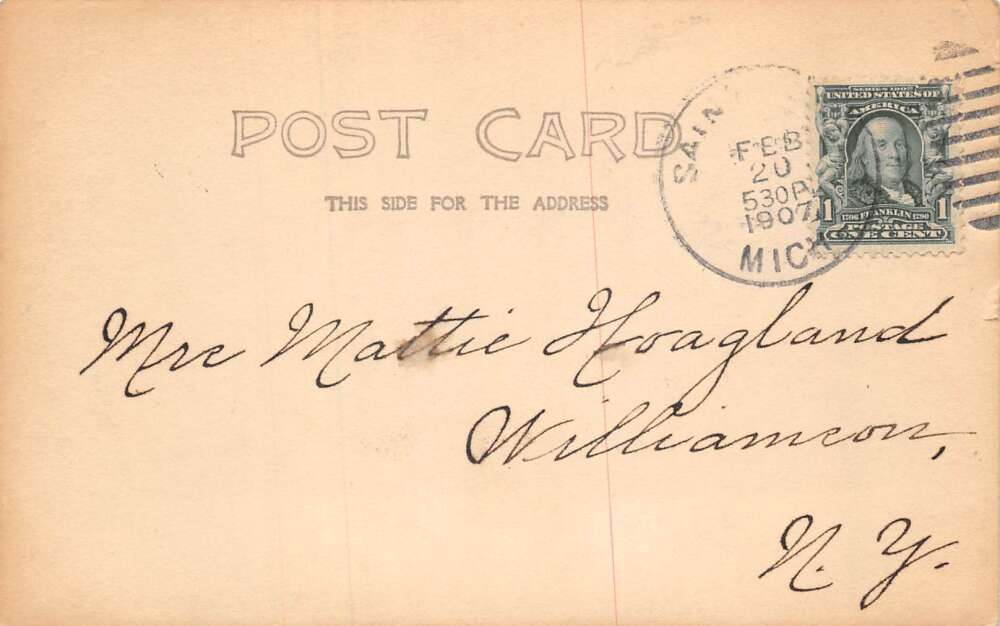 POST CARD
THIS SIDE FOR THE ADDRESS
FEB
20
530P
1907
MICH
SERIES 1902
UNITED STATES OF
AMERICA
1 1
1706 FRANKLIN 1790
POSTAGE
ONE CENT
Mrs Mattie Hoagland
Williamson,
N. Y.